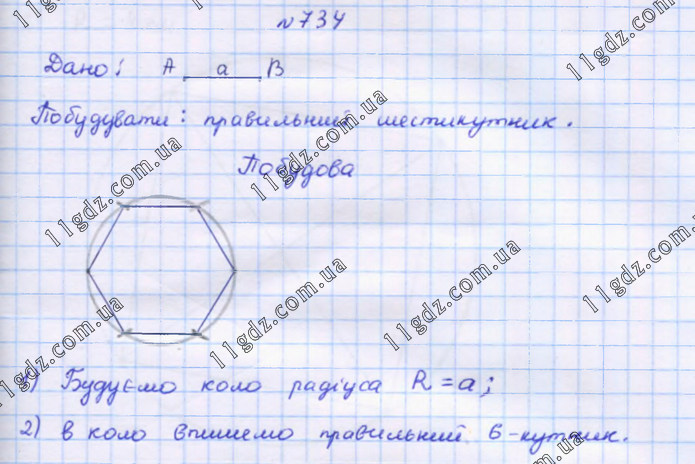 №734
Дано: A a B
Побудувати: правильний шестикутник.
Побудова
1) Будуємо коло радіуса R = a;
2) в коло впишемо правильний 6-кутник.
11gdz.com.ua
11gdz.com.ua
11gdz.com.ua
11gdz.com.ua
11gdz.com.ua
11gdz.com.ua
11gdz.com.ua
11gdz.com.ua
11gdz.com.ua